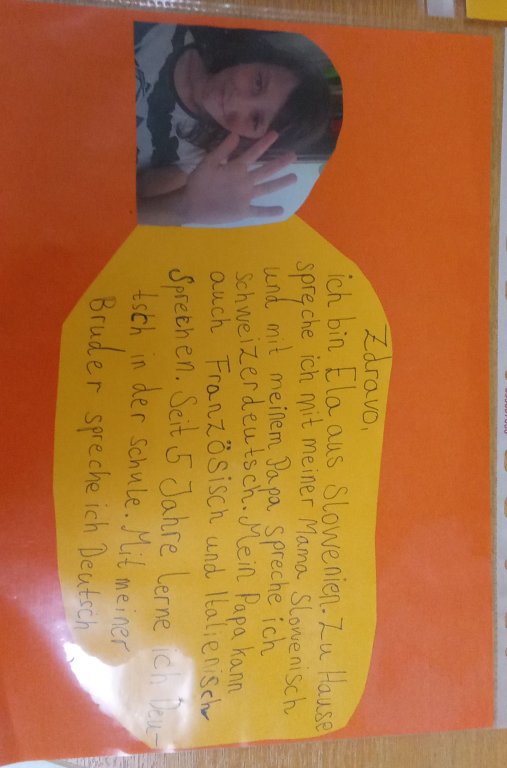 Zdravo,
ich bin Ela aus Slowenien. Zu Hause
spreche ich mit meiner Mama Slowenisch
und mit meinem Papa spreche ich
schweizerdeutsch. Mein Papa kann
auch Französisch und Italienisch
sprechen. Seit 5 Jahre lerne ich Deu-
tsch in der Schule. Mit meiner
Bruder spreche ich Deutsch